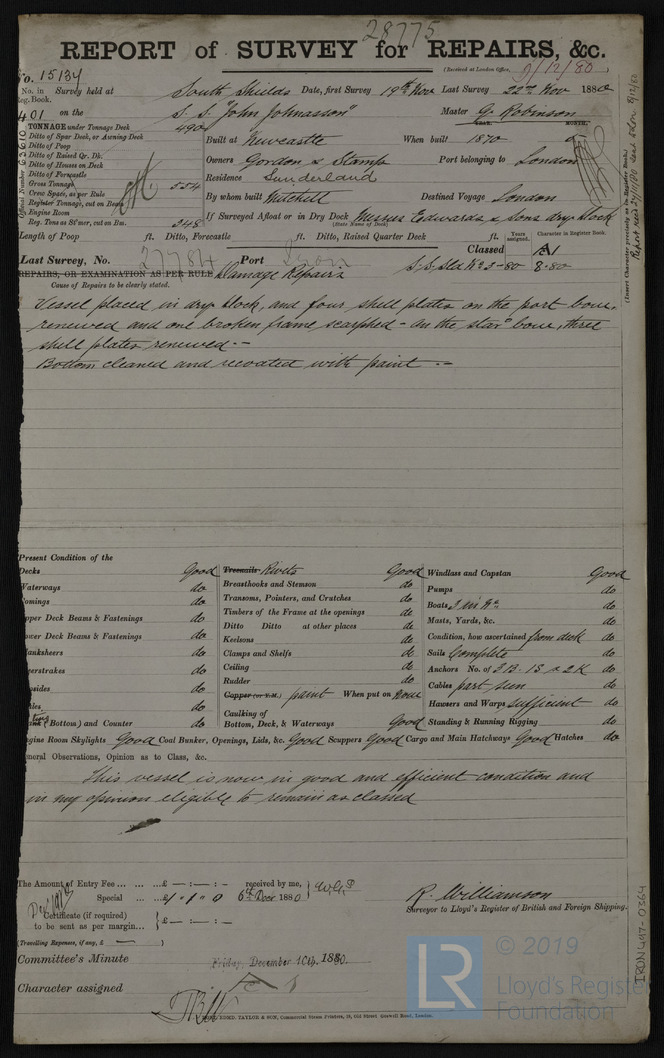 28775
REPORT of SURVEY for REPAIRS, &c.
(Received at London Office, 9/12/80)
No. 15134
No. in Reg. Book. Survey held at South Shields Date, first Survey 19th Nov Last Survey 22nd Nov 1880
401 on the S.S. "John Johnasson" Master G. Robinson
TONNAGE under Tonnage Deck 490
Ditto of Spar Deck, or Awning Deck
Ditto of Poop
Ditto of Raised Qr. Dk.
Ditto of Houses on Deck
Ditto of Forecastle
Gross Tonnage 554
Crew Space, as per Rule
Register Tonnage, cut on Beam
Engine Room
Reg. Tons as St'mer, cut on Bm. 348
Built at Newcastle When built 1870
YEAR. MONTH.
Owners Gordon & Stamp Port belonging to London
Residence Sunderland
By whom built Mitchell Destined Voyage London
If Surveyed Afloat or in Dry Dock Messrs Edwards & Sons dry dock
(State Name of Dock)
Length of Poop ft. Ditto, Forecastle ft. Ditto, Raised Quarter Deck ft. Years assigned. Character in Register Book.
Last Survey, No. 27784 Port Iron Classed A1
REPAIRS, OR EXAMINATION AS PER RULE Damage Repairs S.S. Sld No 3-80 8.80
Cause of Repairs to be clearly stated.
Vessel placed in dry dock, and four shell plates on the port bow,
renewed and one broken frame scarphed - On the star bow, three
shell plates renewed. -
Bottom cleaned and recoated with paint. -
Present Condition of the
Decks Good
Waterways do
Comings do
Upper Deck Beams & Fastenings do
Lower Deck Beams & Fastenings do
Planksheers do
do
do
do
(Bottom) and Counter do
Treenails Rivets Good
Breasthooks and Stemson do
Transoms, Pointers, and Crutches do
Timbers of the Frame at the openings do
Ditto Ditto at other places do
Keelsons do
Clamps and Shelfs do
Ceiling do
Rudder do
Copper (or Y.M.) paint When put on Now
Caulking of
Bottom, Deck, & Waterways Good
Windlass and Capstan Good
Pumps do
Boats 3 in No. do
Masts, Yards, &c. do
Condition, how ascertained from deck do
Sails Complete do
Anchors No. of 3 B. 1 S & 2 K do
Cables part seen do
Hawsers and Warps sufficient do
Standing & Running Rigging do
Engine Room Skylights Good Coal Bunker, Openings, Lids, &c. Good Scuppers Good Cargo and Main Hatchways Good Hatches do
General Observations, Opinion as to Class, &c.
This vessel is now in good and efficient condition and
in my opinion eligible to remain as classed
The Amount of Entry Fee ... ... ...£ — : — : — received by me,
Special ... ...£ 1 " 1 " 0 6th Decr 1880
Certificate (if required) to be sent as per margin... £ — : — : —
(Travelling Expenses, if any, £ — )
R. Williamson
Surveyor to Lloyd's Register of British and Foreign Shipping.
Committee's Minute Friday, December 10th, 1880.
Character assigned
ROBT. ROMD. TAYLOR & SON, Commercial Steam Printers, 19, Old Street, Goswell Road, London.
(Insert Character precisely as in Register Book.)
IRON 447-0364
LR © 2019
Lloyd's Register
Foundation